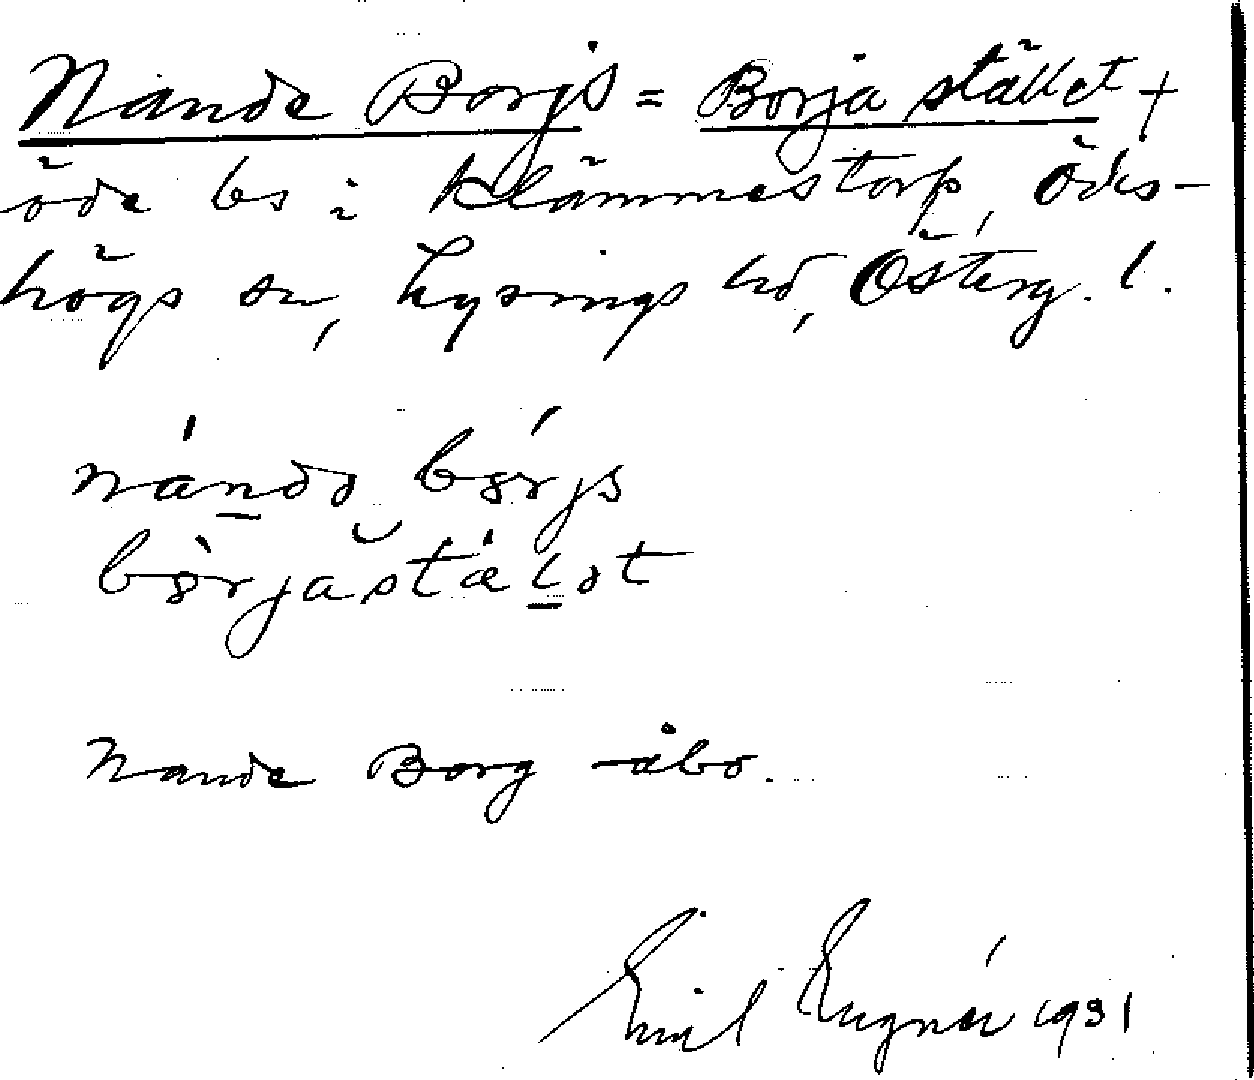 Nande Borjs = Borja stället +
öde bs i Klämmestorp, Ödes-
högs sn, Lysings hd, Österg. l.
nándə bórjs
bòrjăstǽl̲ət
Nande Borg åbo.
Emil 1931